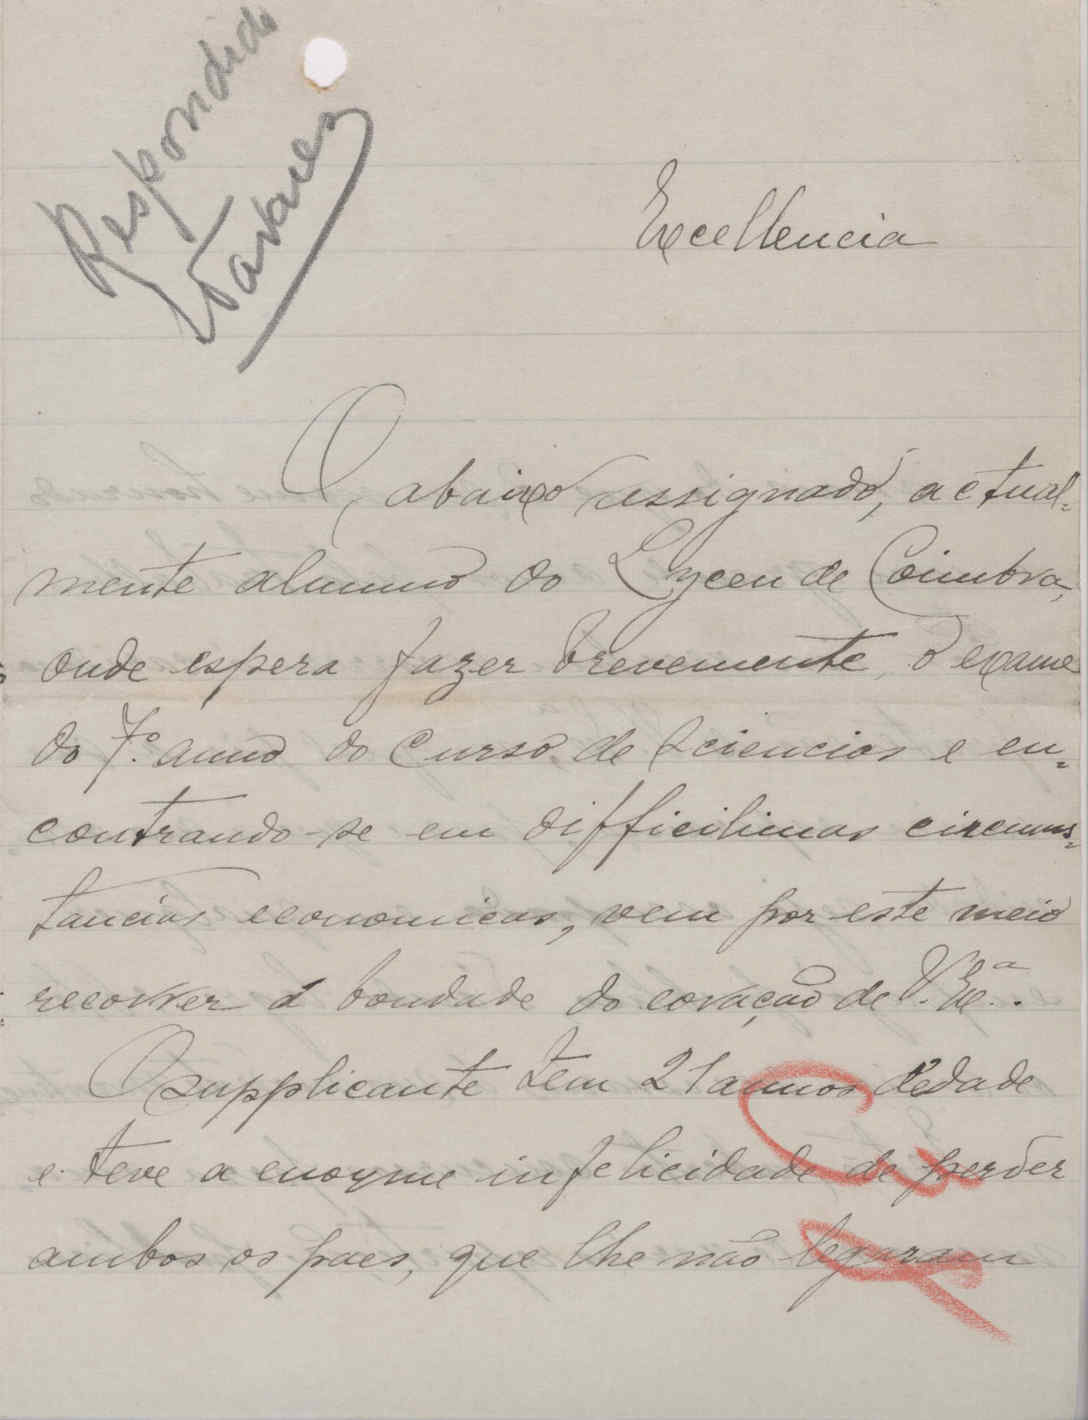 Respondido
Tavares
Excellencia
O abaixo assignado, actual=
mente alumno do Lyceu de Coimbra,
onde espera fazer brevemente, o exame
do 7.º anno do Curso de Sciencias e en=
contrando-se em difficilimas circums=
tancias economicas, vem por este meio
recorrer á bondade do coração de V. Exª.
O supplicante tem 21 annos d'edade
e teve a enorme infelicidade de perder
ambos os paes, que lhe não legaram